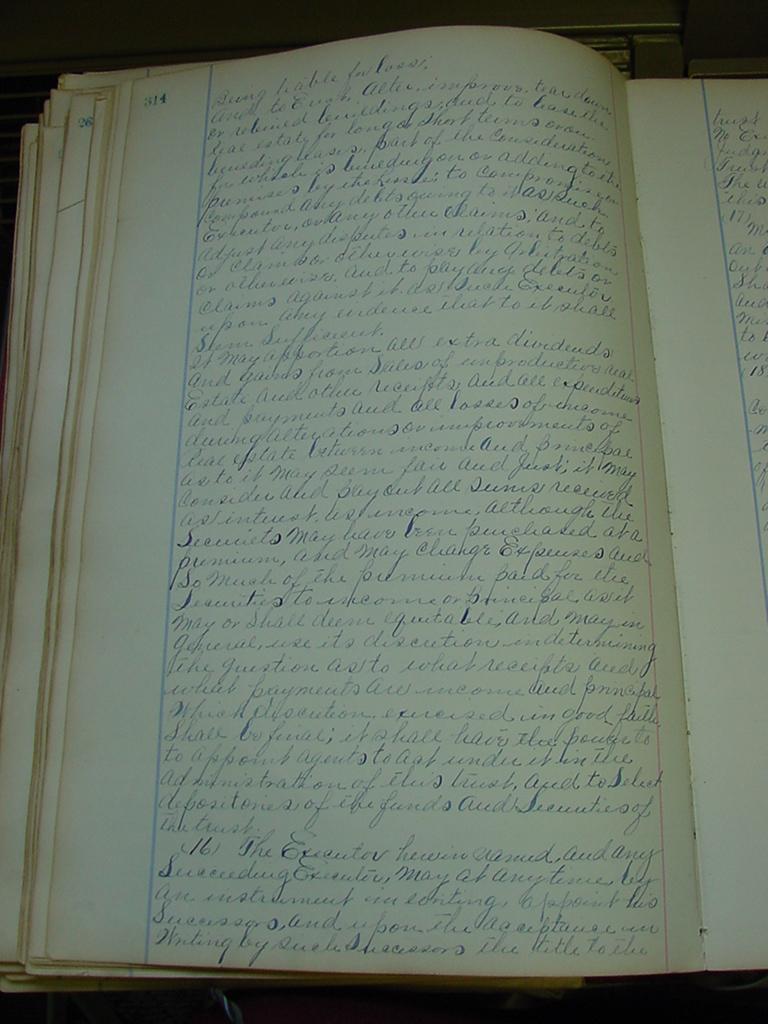 314
being liable for loss;
And to Erect, Alter, improve, tear down
or rebuild buildings; and to lease the
real estate for long or short terms or on
building leases, part of the Consideration
for which is building on or adding to the
premises by the lessee; to Compromise or
Compound Any debts owing to it as such
Executor, or Any other Claims; and to
Adjust Any disputes in relation to debts
or Claims or otherwise by Arbitration
or otherwise. And to pay Any debts or
Claims against it as such Executor
upon Any evidence that to it shall
Seem Sufficient.
It May Apportion All extra dividends
And gains from Sales of unproductive real
Estate And other receipts, And all expenditures
And payments and all losses of income
during alterations or improvements of
real estate between income And principal
as to it May Seem fair and Just; it May
Consider And pay out All Sums received
as interest, as income, although the
Securiets May have been purchased at a
premium, and May Charge Expenses and
So Much of the premium paid for the
Securities to income or principal as it
May or Shall deem equitable, And May in
general, use its discretion in determining
the question as to what receipts and
what payments are income and principal
Which discretion exercised in good faith
Shall be final; it shall have the power to
to appoint agents to act under it in the
administration of this trust, And to Select
depositories of the funds And Securities of
the trust.
(16) The Executor herein named, and any
Succeeding Executor, May at any time, by
an instrument in writing, appoint his
Successors, and upon the acceptance in
Writing by such Successors the title to the
26
trust
No Exe
The
this
(17)
An
Out
Sha
And
to
18